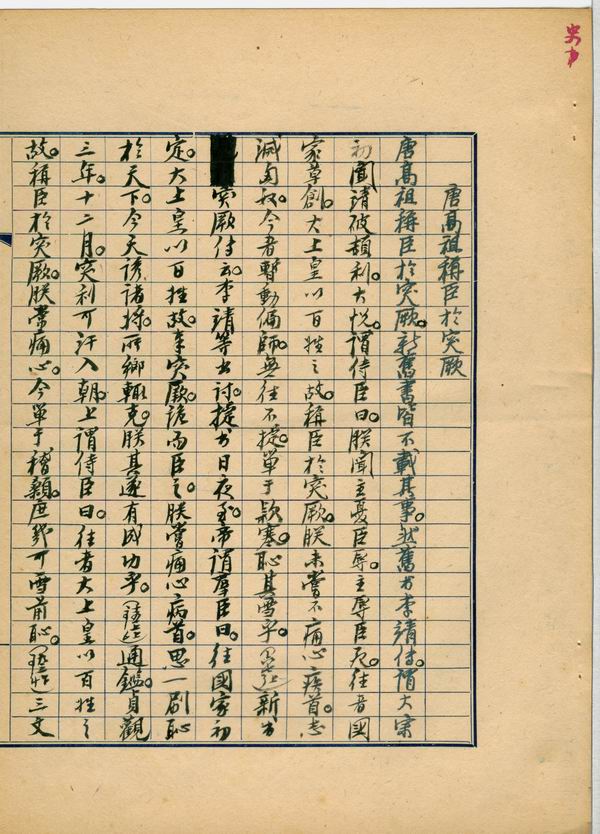 唐高祖稱臣於突厥
唐高祖稱臣於突厥。新舊書皆不載其事。然舊書李靖傳謂太宗
初聞靖破頡利。大悅。謂侍臣曰。朕聞主憂臣辱。主辱臣死。往者國
家草創。太上皇以百姓之故。稱臣於突厥。朕未嘗不痛心疾首。志
滅匈奴。今者暫動偏師。無往不捷。單于款塞。恥其雪乎。新書
突厥傳云。李靖等出討。捷書日夜至。帝謂羣臣曰。往國家初
定。太上皇以百姓故。奉突厥。詭而臣之。朕嘗痛心病首。思一刷恥
於天下。今天誘諸將。所鄉輒克。朕其遂有成功乎。通鑑。貞觀
三年。十二月。突利可汗入朝。上謂侍臣曰。往者太上皇以百姓之
故。稱臣於突厥。朕常痛心。今單于稽顙。庶幾可雪前恥。三文